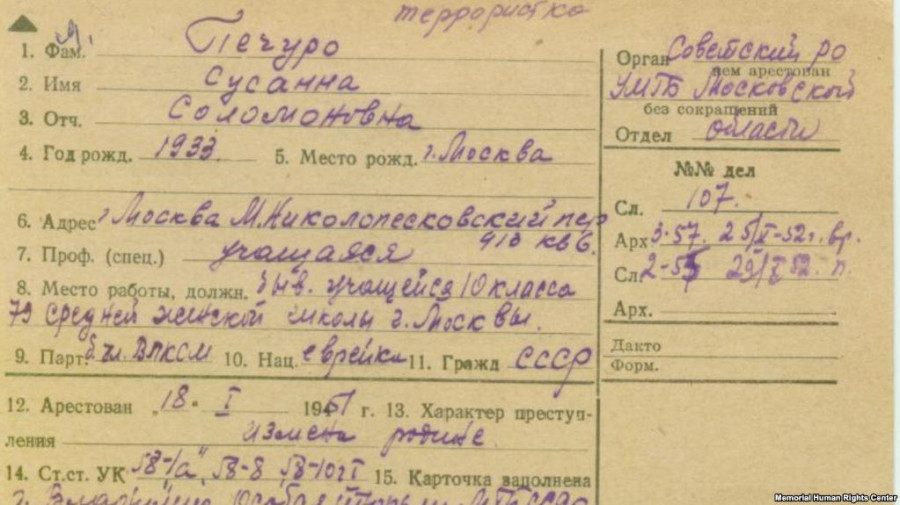 террористка
1. Фам. Печуро
2. Имя Сусанна
3. Отч. Соломоновна
4. Год рожд. 1933. 5. Место рожд. г. Москва
6. Адрес г Москва М. Николопесковский пер
9/8 кв 6.
7. Проф. (спец.) учащаяся
8. Место работы, должн. быв. учащейся 10 класса
79 средней женской школы г. Москвы.
9. Парт. б. чл. ВЛКСМ 10. Нац. еврейка 11. Гражд СССР
12. Арестован „18" I 1951 г. 13. Характер преступ-
ления измена родине
14. Ст.ст. УК 58-1а", 58-8, 58-10 ч I 15. Карточка заполнена
Орган Советский ро
чем арестован
УМГБ Московской
без сокращений
Отдел области
№№ дел
Сл. 107.
Арх 3-57. 25/ -52 г. вр.
Сл. 2-5 29/ 52. п.
Арх.
Дакто
Форм.
Memorial Human Rights Center